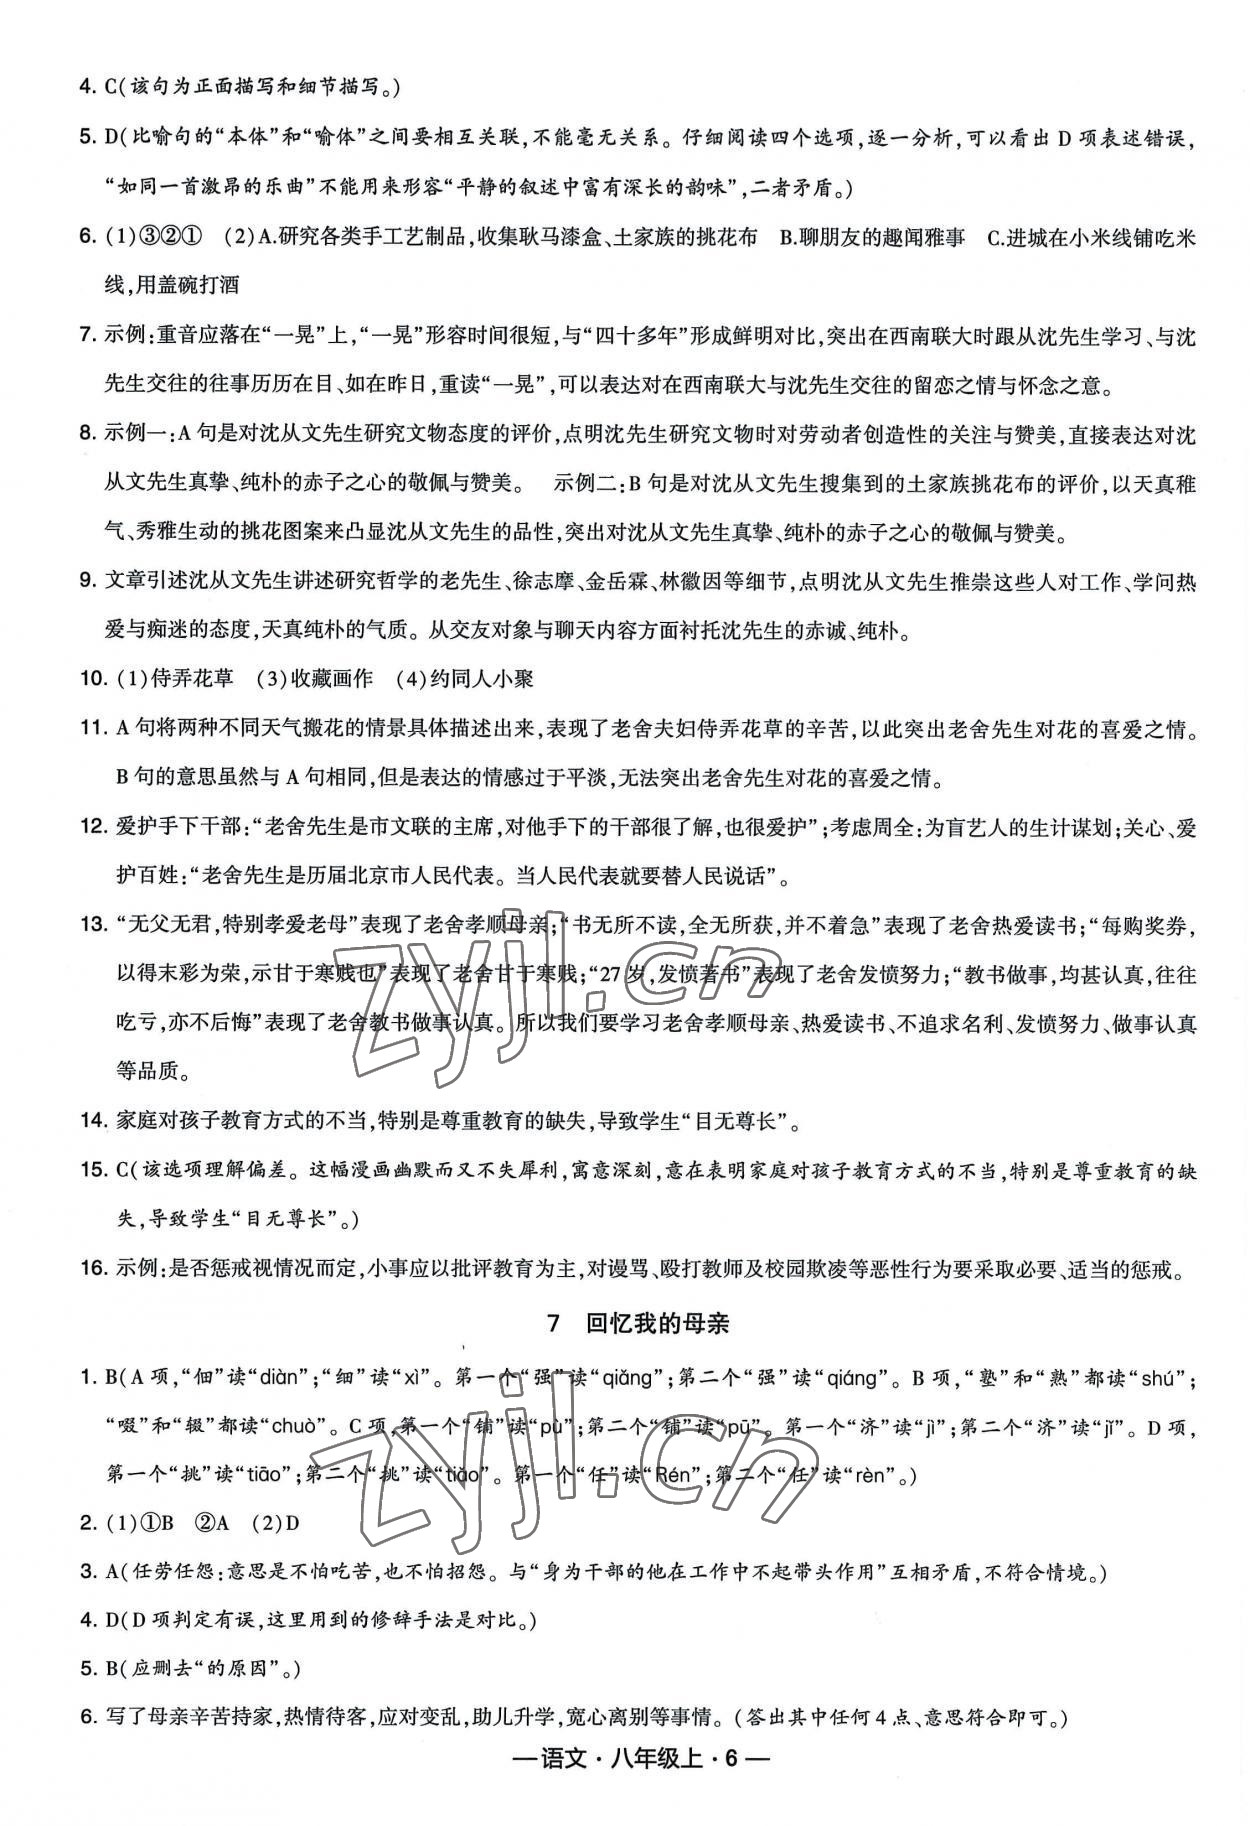 4. C(该句为正面描写和细节描写。)
5. D(比喻句的“本体”和“喻体”之间要相互关联,不能毫无关系。仔细阅读四个选项,逐一分析,可以看出 D 项表述错误,
“如同一首激昂的乐曲”不能用来形容“平静的叙述中富有深长的韵味”,二者矛盾。)
6. (1)③②① (2)A.研究各类手工艺制品,收集耿马漆盒、土家族的挑花布 B.聊朋友的趣闻雅事 C.进城在小米线铺吃米
线,用盖碗打酒
7. 示例:重音应落在“一晃”上,“一晃”形容时间很短,与“四十多年”形成鲜明对比,突出在西南联大时跟从沈先生学习、与沈
先生交往的往事历历在目、如在昨日,重读“一晃”,可以表达对在西南联大与沈先生交往的留恋之情与怀念之意。
8. 示例一:A 句是对沈从文先生研究文物态度的评价,点明沈先生研究文物时对劳动者创造性的关注与赞美,直接表达对沈
从文先生真挚、纯朴的赤子之心的敬佩与赞美。 示例二:B 句是对沈从文先生搜集到的土家族挑花布的评价,以天真稚
气、秀雅生动的挑花图案来凸显沈从文先生的品性,突出对沈从文先生真挚、纯朴的赤子之心的敬佩与赞美。
9. 文章引述沈从文先生讲述研究哲学的老先生、徐志摩、金岳霖、林徽因等细节,点明沈从文先生推崇这些人对工作、学问热
爱与痴迷的态度,天真纯朴的气质。从交友对象与聊天内容方面衬托沈先生的赤诚、纯朴。
10. (1)侍弄花草 (3)收藏画作 (4)约同人小聚
11. A 句将两种不同天气搬花的情景具体描述出来,表现了老舍夫妇侍弄花草的辛苦,以此突出老舍先生对花的喜爱之情。
B 句的意思虽然与 A 句相同,但是表达的情感过于平淡,无法突出老舍先生对花的喜爱之情。
12. 爱护手下干部:“老舍先生是市文联的主席,对他手下的干部很了解,也很爱护”;考虑周全:为盲艺人的生计谋划;关心、爱
护百姓:“老舍先生是历届北京市人民代表。当人民代表就要替人民说话”。
13. “无父无君,特别孝爱老母”表现了老舍孝顺母亲;“书无所不读,全无所获,并不着急”表现了老舍热爱读书;“每购奖券,
以得末彩为荣,示甘于寒贱也”表现了老舍甘于寒贱;“27 岁,发愤著书”表现了老舍发愤努力;“教书做事,均甚认真,往往
吃亏,亦不后悔”表现了老舍教书做事认真。所以我们要学习老舍孝顺母亲、热爱读书、不追求名利、发愤努力、做事认真
等品质。
14. 家庭对孩子教育方式的不当,特别是尊重教育的缺失,导致学生“目无尊长”。
15. C(该选项理解偏差。这幅漫画幽默而又不失犀利,寓意深刻,意在表明家庭对孩子教育方式的不当,特别是尊重教育的缺
失,导致学生“目无尊长”。)
16. 示例:是否惩戒视情况而定,小事应以批评教育为主,对谩骂、殴打教师及校园欺凌等恶性行为要采取必要、适当的惩戒。
7 回忆我的母亲
1. B(A 项,“佃”读“diàn”;“细”读“xì”。第一个“强”读“qiǎng”;第二个“强”读“qiáng”。B 项,“塾”和“熟”都读“shú”;
“啜”和“辍”都读“chuò”。C 项,第一个“铺”读“pù”;第二个“铺”读“pū”。第一个“济”读“jì”;第二个“济”读“jǐ”。D 项,
第一个“挑”读“tiāo”;第二个“挑”读“tiǎo”。第一个“任”读“Rén”;第二个“任”读“rèn”。)
2. (1)①B ②A (2)D
3. A(任劳任怨:意思是不怕吃苦,也不怕招怨。与“身为干部的他在工作中不起带头作用”互相矛盾,不符合情境。)
4. D(D 项判定有误,这里用到的修辞手法是对比。)
5. B(应删去“的原因”。)
6. 写了母亲辛苦持家,热情待客,应对变乱,助儿升学,宽心离别等事情。(答出其中任何 4 点、意思符合即可。)
—语文·八年级上·6—
zyjl.cn
zyjl.cn